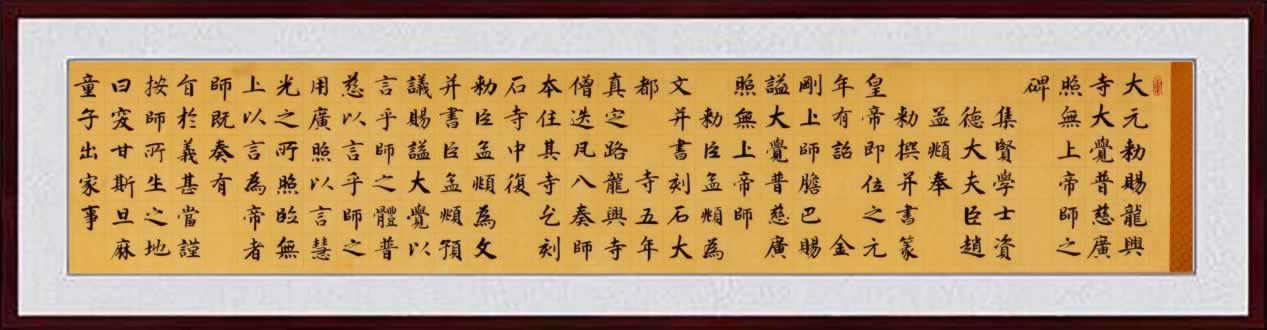 大元勅賜龍興
寺大覺普慈廣
照無上帝師之
碑
集賢學士資
德大夫臣趙
孟頫奉
勅撰并書篆
皇帝即位之元
年有詔 金
剛上師膽巴賜
謚大覺普慈廣
照無上帝師
勅臣孟頫為
文并書刻石大
都 寺五年
真定路龍興寺
僧迭凡八奏師
本住其寺乞刻
石寺中復
勅臣孟頫為文
并書臣孟頫預
議賜謚大覺以
言乎師之體普
慈以言乎師之
用廣照以言慧
光之所照臨無
上以言為帝者
師既奏有
旨於義甚當謹
按師所生之地
曰突甘斯旦麻
童子出家事